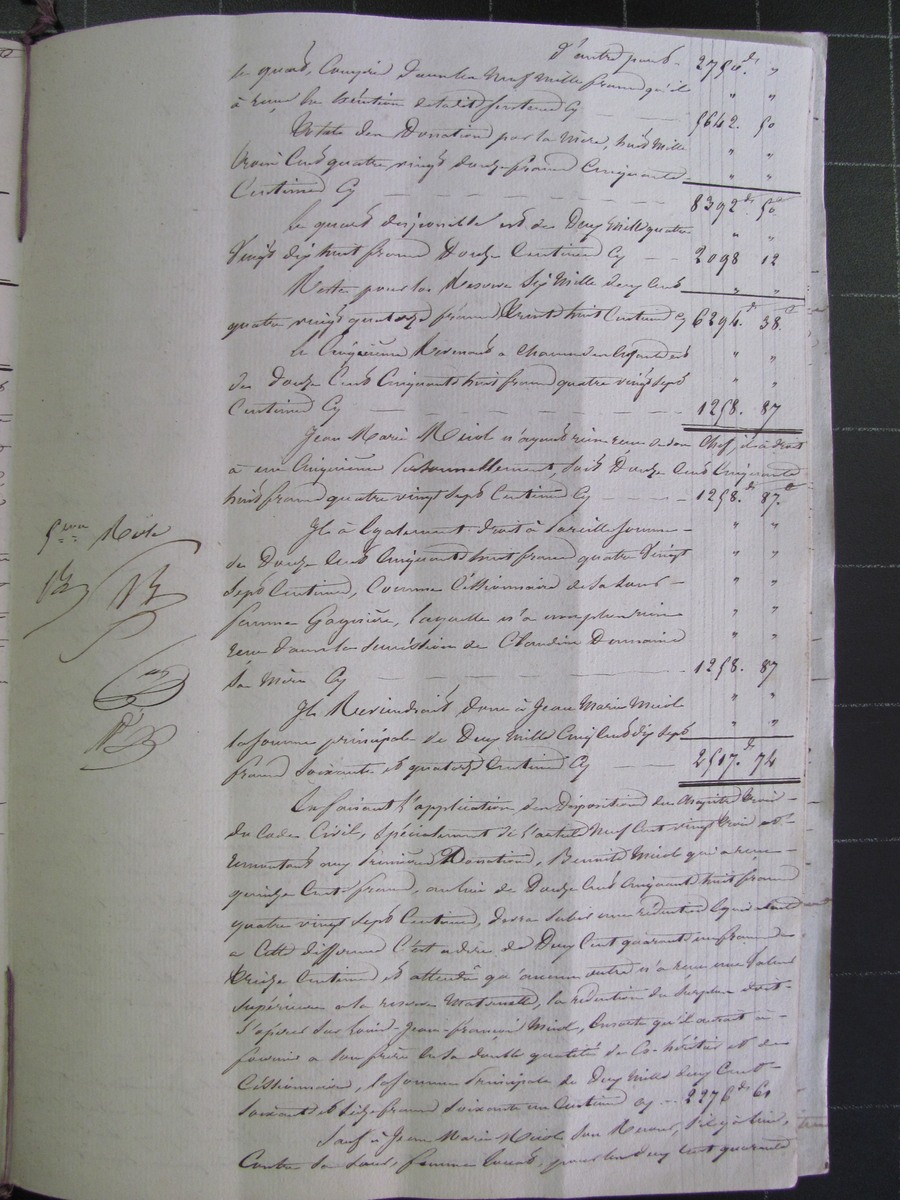 D'autre part 2750.f "
le quart, Compris dans les Neuf mille francs qu'il " "
à reçu Cy 5642. 50
Total des Donations par la Mère, huit Mille " "
trois Cent quatre vingt douze francs Cinquante " "
Centimes Cy 8392.f 50.c
Le quart disponible est de Deux Mille quatre " "
Vingt dix huit francs Douze Centimes Cy 2098 12
Reste pour la Reserve Six Mille deux Cent " "
quatre vingt quatorze francs trente huit Centimes Cy 6294.f 38.c
Le Cinquième Revenant à Chacun des Enfants est " "
de Douze Cent Cinquante huit francs quatre vingt sept " "
Centimes Cy 1258. 87
Jean Marie Miol n'ayant rien reçu de son Chef, il à droit
à un Cinquième Personnellement, soit Douze Cent Cinquante
huit francs quatre vingt sept Centimes Cy 1258.f 87.c
Il à Egalement droit à Pareille somme " "
de Douze Cent Cinquante huit francs quatre Vingt " "
sept Centimes, Comme Cessionnaire de sa soeur " "
femme laquelle n'a rien " "
reçu dans la succession de Claudine " "
sa Mère Cy 1258. 87
Il Reviendrait donc à Jean Marie Miol " "
la somme principale de Deux Mille Cinq Cent dix sept " "
francs soixante et quatorze Centimes Cy 2517.f 74
En faisant l'application des Dispositions du Chapitre trois
du Code Civil, spécialement de l'article Neuf Cent vingt trois et
remontant aux Premières Donations, Benoit Miol qui a reçu
quinze Cent francs, au lieu de Douze Cent Cinquante huit francs
quatre vingt sept Centimes, devra subir une réduction Equivalente
a Cette différence C'est a dire de Deux Cent quarante un francs
treize Centimes et attendu qu'aucun autre n'a reçu une Valeur
supérieure a la reserve Maternelle, la réduction du surplus doit
s'opérer sur Louis-Jean-françois Miol, Ensorte qu'il aurait a
fournir a son frère En sa double qualité de Co-héritier et de
Cessionnaire, la somme Principale de Deux Mille deux Cent
soixante et seize francs soixante un Centimes Cy 2276.f 61
Sauf à Jean Marie Miol son Recours, s'il y à lieu,
Contre sa soeur, femme pour les deux Cent quarante
5.me Rôle